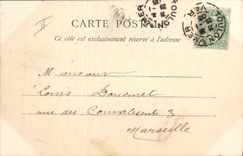 II
CARTE POSTALE
Ce côté est exclusivement réservé à l'adresse
TOULON
Monsieur
Louis
rue des Convalescents 3
Marseille